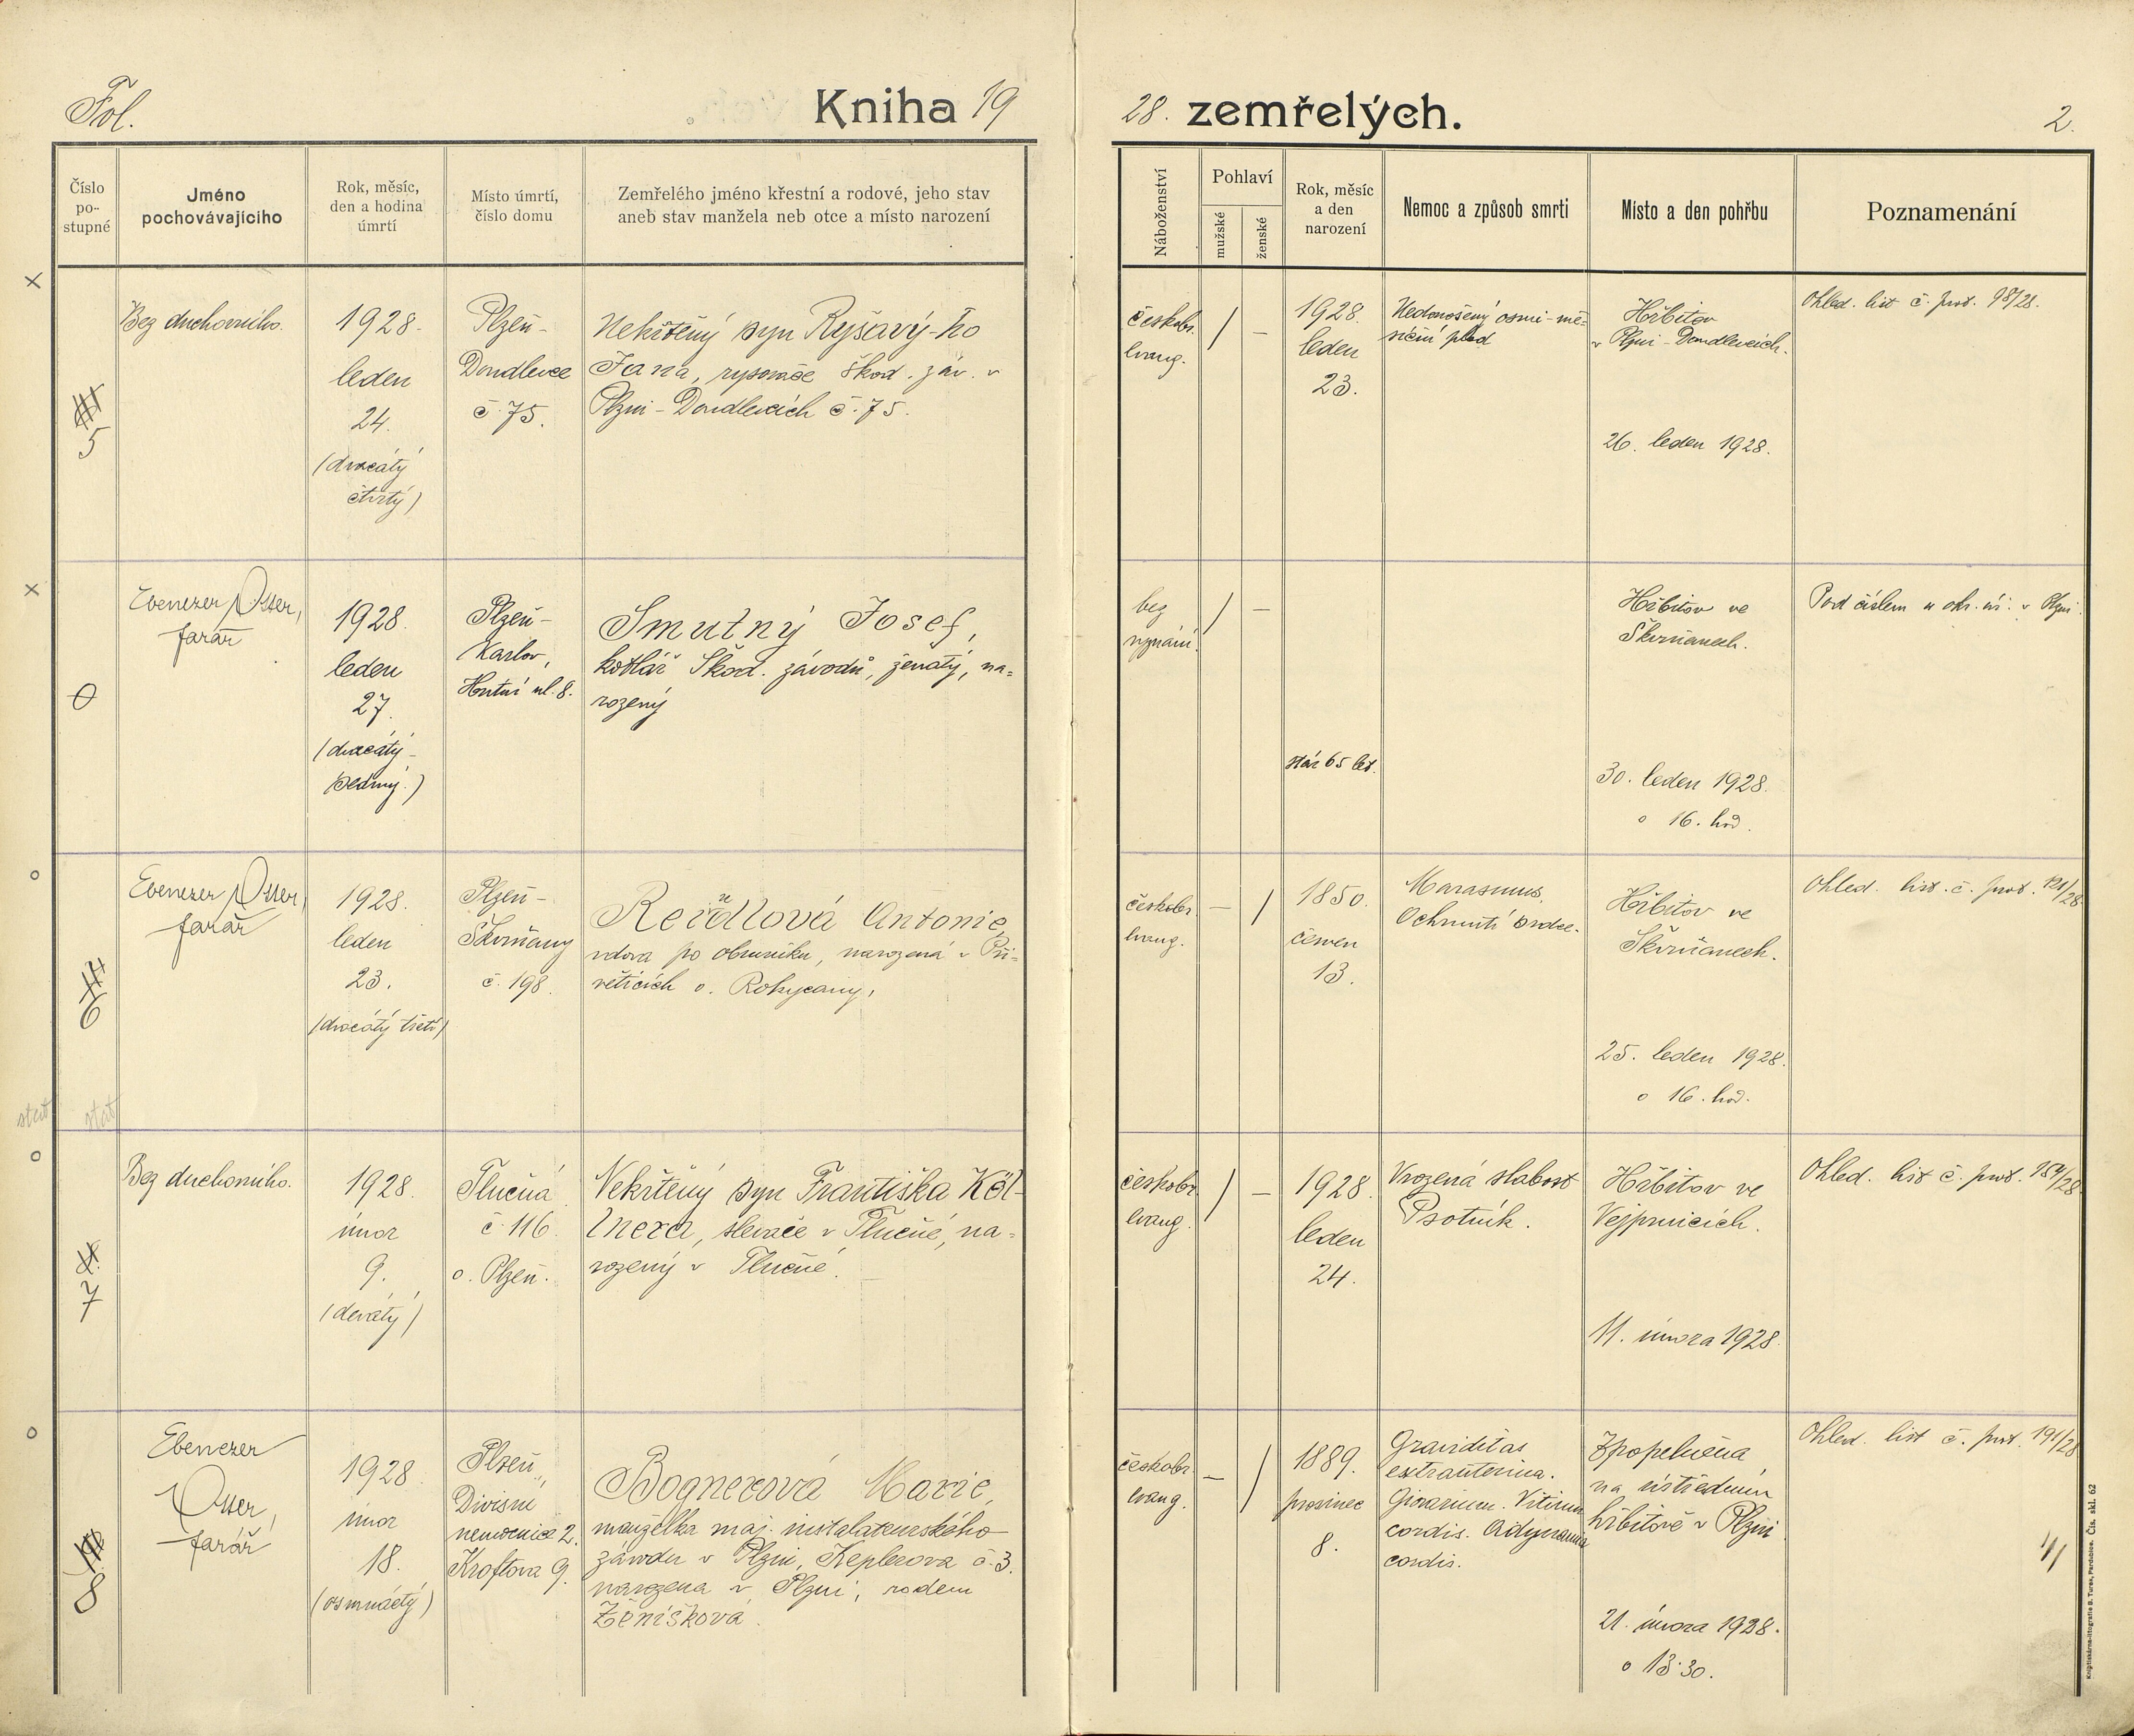 Fol.
Kniha 19
28. zemřelých.
2.
Číslo
po-
stupné
Jméno
pochovávajícího
Rok, měsíc,
den a hodina
úmrtí
Místo úmrtí,
číslo domu
Zemřelého jméno křestní a rodové, jeho stav
aneb stav manžela neb otce a místo narození
Náboženství
Pohlaví
mužské
ženské
Rok, měsíc
a den
narození
Nemoc a způsob smrti
Místo a den pohřbu
Poznamenání
×
5
Bez duchovního.
1928.
leden
24.
(dvacátý
čtvrtý)
Plzeň-
Doudlevce
č. 75.
Nekřtěný syn Ryšavý-ho
Jana, rysovače Škod. záv. v
Plzni-Doudlevcích č. 75.
českobr.
evang.
/
—
1928.
leden
23.
Nedonošený osmi-mě-
síční plod
Hřbitov
v Plzni-Doudlevcích.
26. leden 1928.
Ohled. list č. prot. 98/28.
×
0
Ebenezer Otter,
farář
1928.
leden
27.
(dvacátý-
sedmý.)
Plzeň-
Karlov,
Hutní ul. 8.
Smutný Josef,
kotlář Škod. závodů, ženatý, na-
rozený
bez
vyznání.
/
—
stár 65 let.
Hřbitov ve
Škvrňanech.
30. leden 1928.
o 16. hod.
Pod číslem u okr. úř. v Plzni.
o
6
Ebenezer Otter,
farář
1928.
leden
23.
(dvacátý třetí)
Plzeň-
Škvrňany
č. 198.
Antonie,
vdova po obuvníku, narozená v Při-
větících o. Rokycany,
českobr.
evang.
—
/
1850.
červen
13.
Marasmus.
Ochrnutí srdce.
Hřbitov ve
Škvrňanech.
25. leden 1928.
o 16. hod.
Ohled. list. č. prot. 121/28
o
7
Bez duchovního.
1928.
únor
9.
(devátý)
Tlučná
č. 116.
o. Plzeň.
Nekřtěný syn Františka Köl-
lnera, slevače v Tlučné, na-
rozený v Tlučné.
českobr.
evang.
/
—
1928.
leden
24.
Vrozená slabost
Psotník.
Hřbitov ve
Vejprnicích.
11. února 1928.
Ohled. list č. prot. 184/28
o
8
Ebenezer
Otter,
farář
1928.
únor
18.
(osmnáctý)
Plzeň,
Divisní
nemocnice 2.
Kroftova 9.
Bognerová Marie,
manželka maj. instalaterského
závodu v Plzni, Keplerova č. 3.
narozena v Plzni, rodem
Ženíšková.
českobr.
evang.
—
/
1889.
prosinec
8.
Graviditas
extrauterina.
Vitium
cordis. Adynamia
cordis.
Zpopelněna
na ústředním
hřbitově v Plzni
21. února 1928.
o 13.30.
Ohled. list č. prot. 191/28
Knihtiskárna-litografie B. Turek, Pardubice. Čís. skl. 62